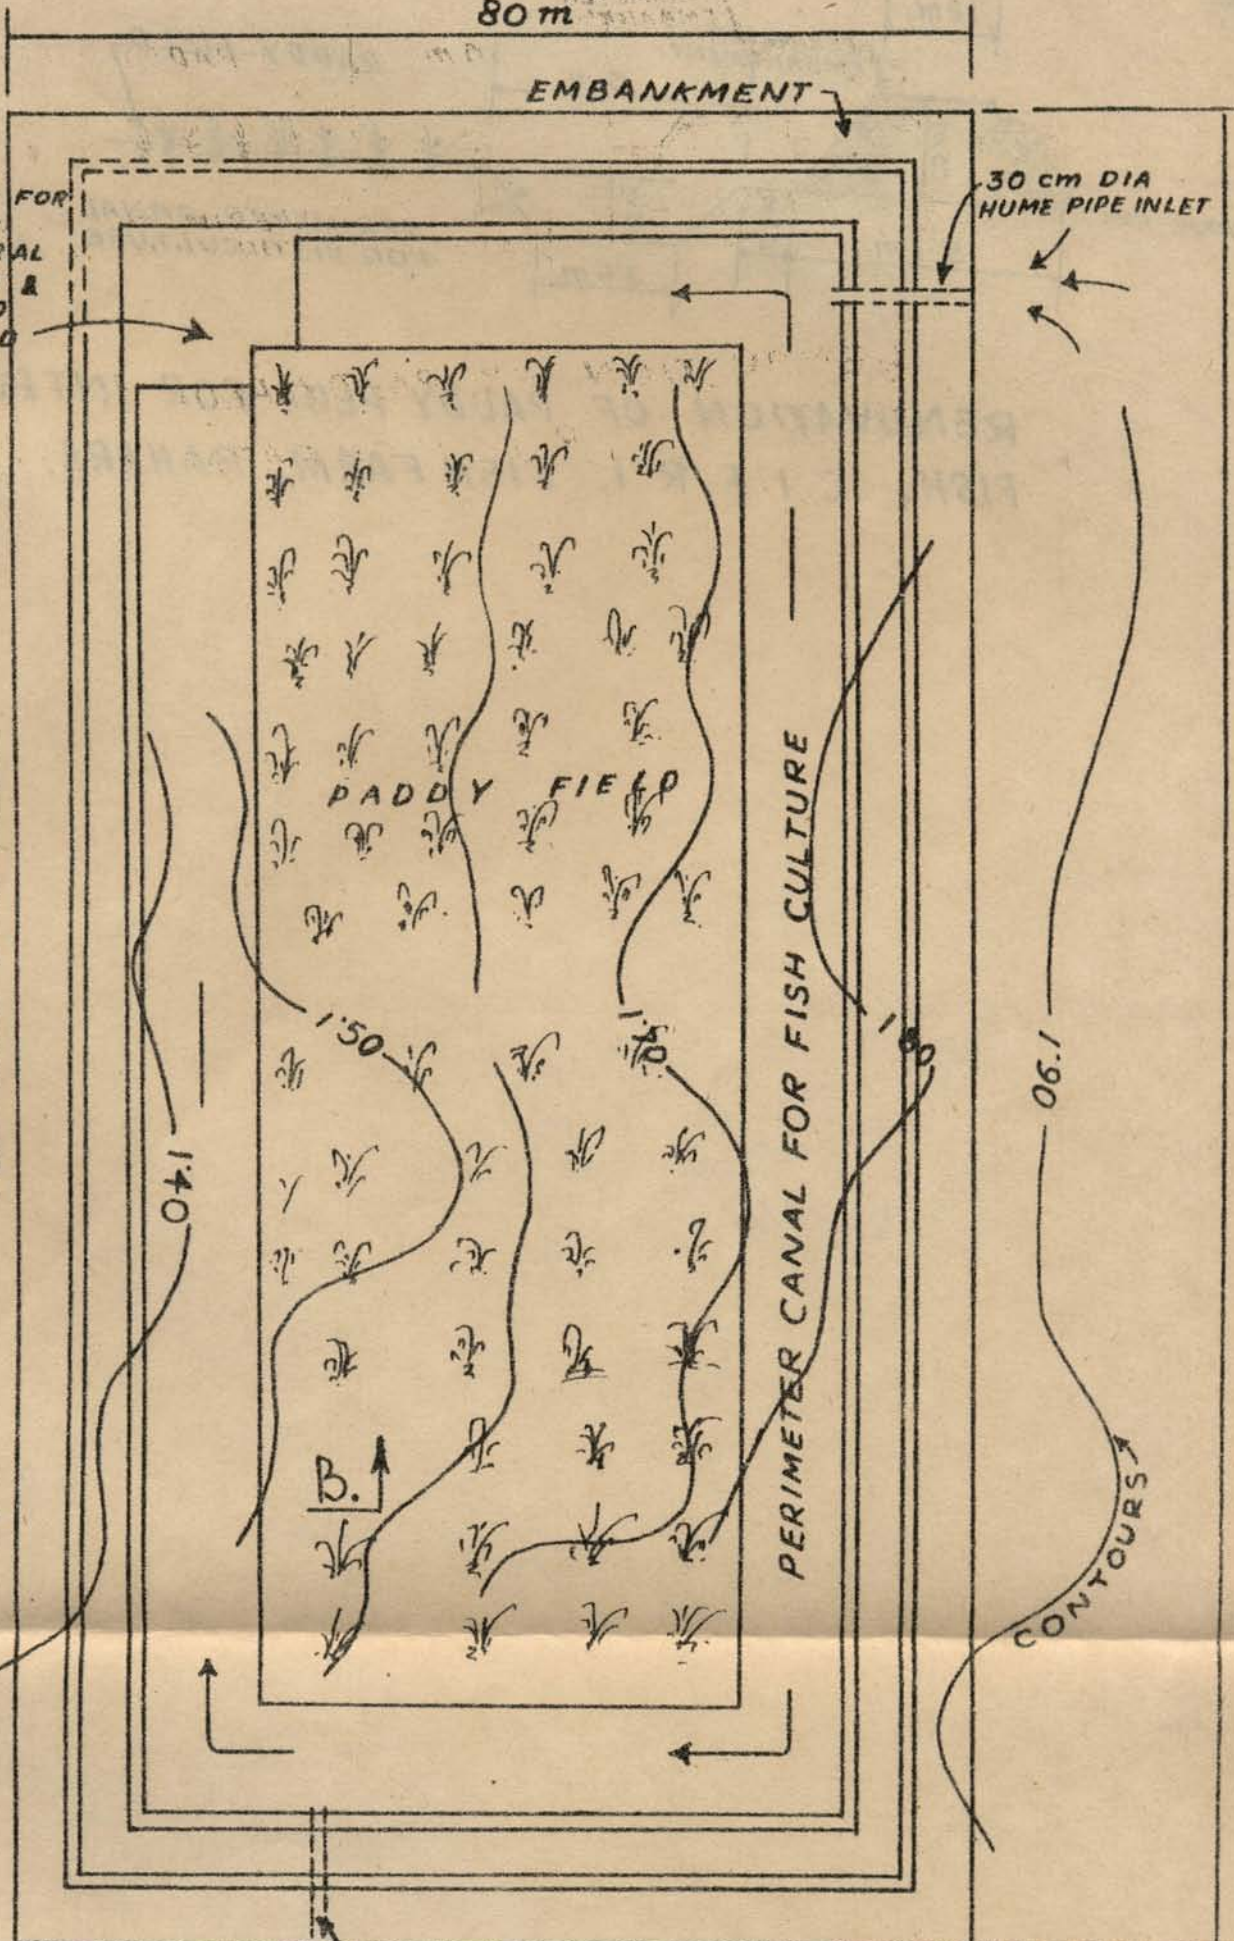 80 m
EMBANKMENT
FOR
30 cm DIA
HUME PIPE INLET
&
PADDY FIELD
PERIMETER CANAL FOR FISH CULTURE
1.50
1.40
1.90
B.
CONTOURS